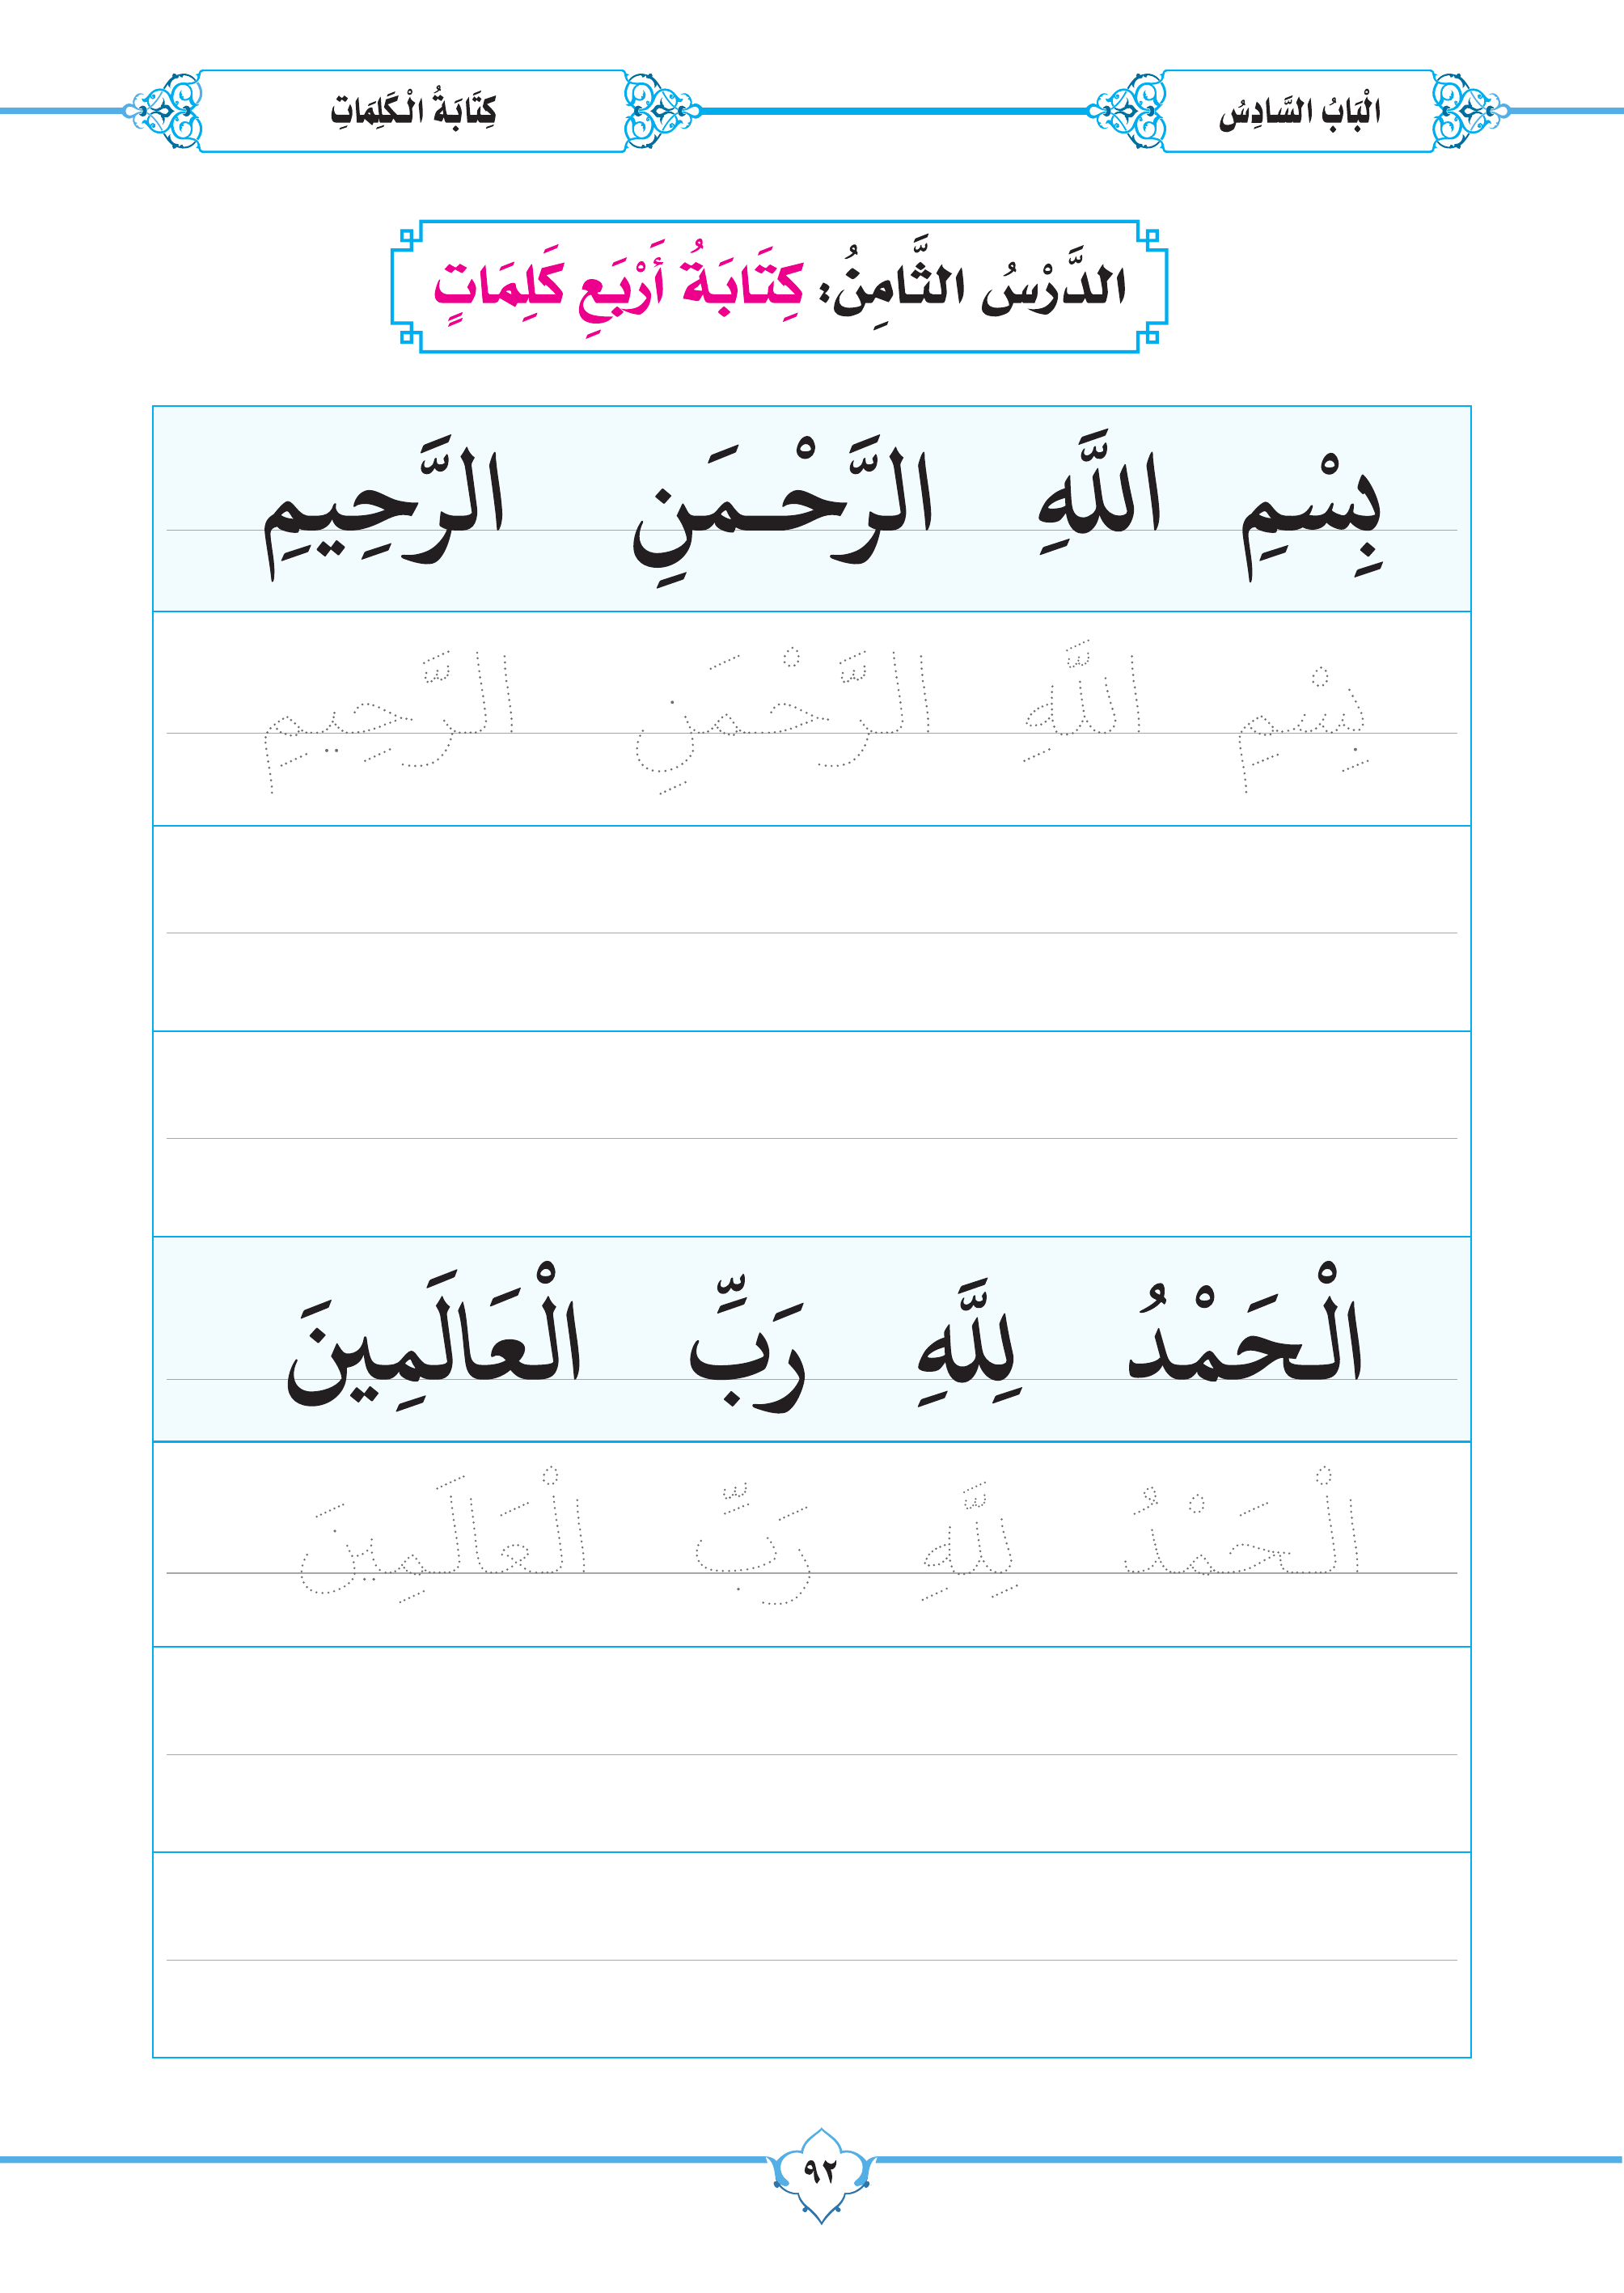 الْبَابُ السَّادِسُ
كِتَابَةُ الْكَلِمَاتِ
الدَّرْسُ الثَّامِنُ: كِتَابَةُ أَرْبَعِ كَلِمَاتٍ
بِسْمِ اللَّهِ الرَّحْمَنِ الرَّحِيمِ
بِسْمِ اللَّهِ الرَّحْمَنِ الرَّحِيمِ
الْحَمْدُ لِلَّهِ رَبِّ الْعَالَمِينَ
الْحَمْدُ لِلَّهِ رَبِّ الْعَالَمِينَ
٩٢